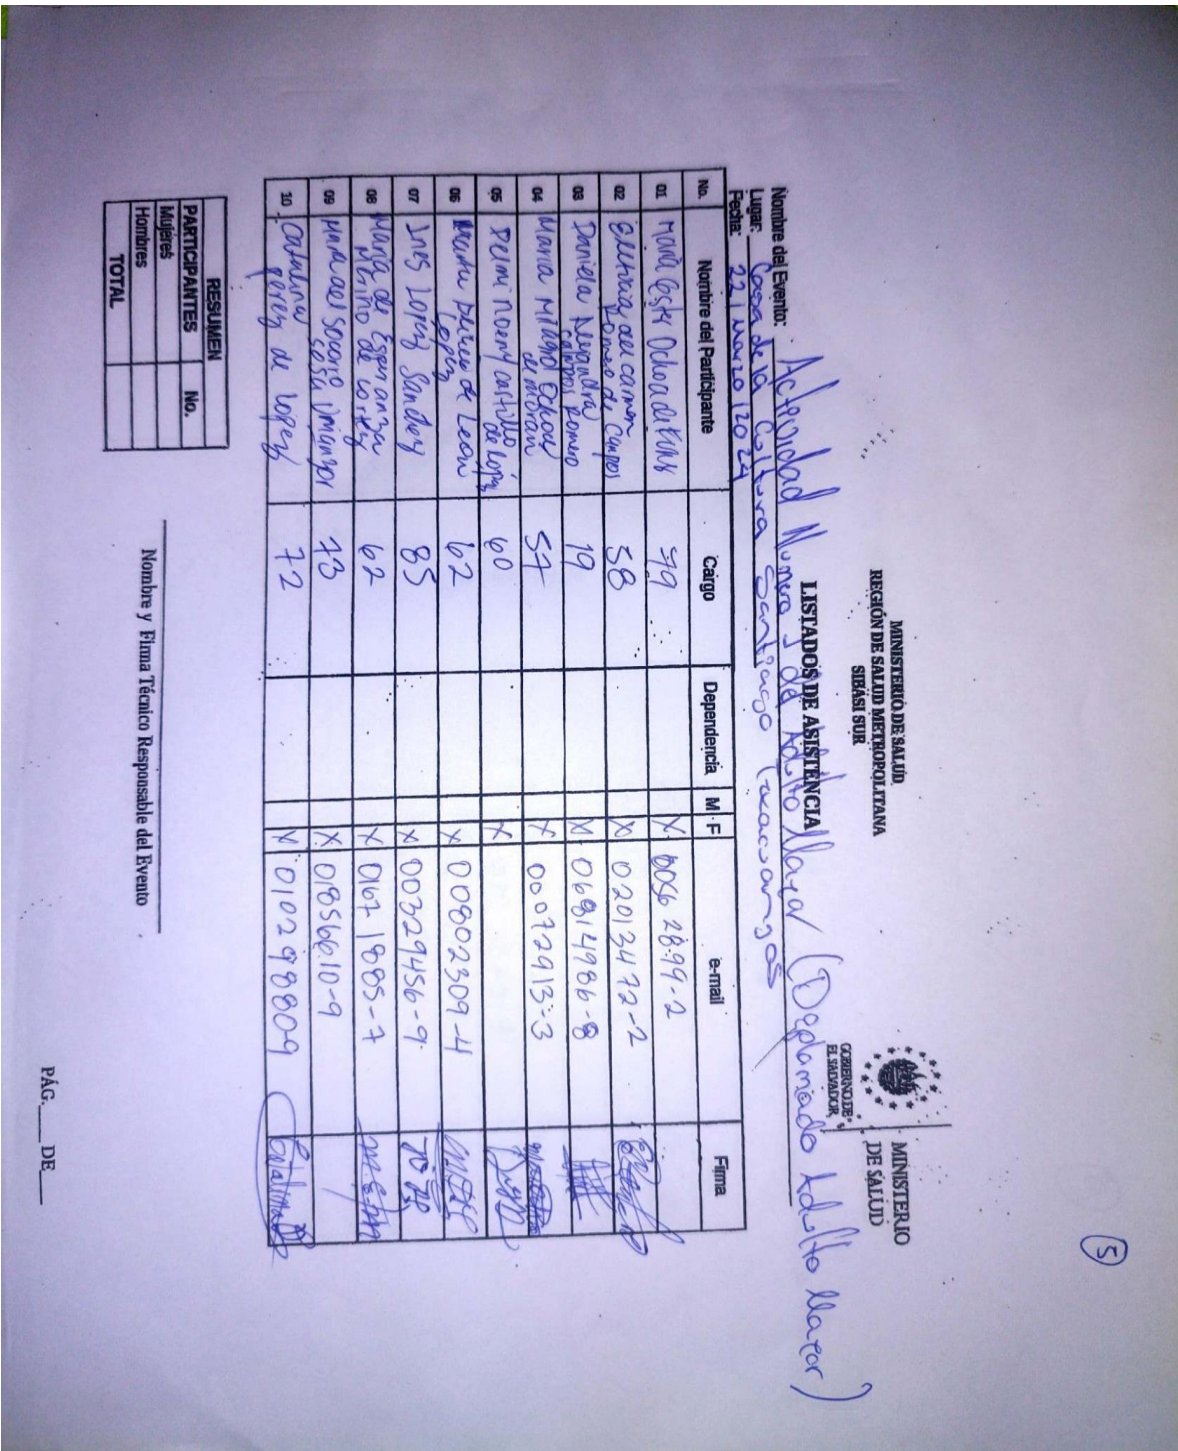 5
MINISTERIO DE SALUD
REGIÓN DE SALUD METROPOLITANA
SIBASI SUR
GOBIERNO DE
EL SALVADOR
MINISTERIO
DE SALUD
LISTADOS DE ASISTENCIA
Nombre del Evento: Actividad Numero 5 de Adulto Mayor ( Adulto Mayor)
Lugar: Casa de la Cultura Santiago Texacuangos
Fecha: 22/Marzo/2024
No. Nombre del Participante Cargo Dependencia M F e-mail Firma
01 Maria Ester Ochoa de 79 X 00562899-2
02 del carmen Romero de Campos 58 X 02013472-2
03 Daniela Alejandra Campos Romero 19 X 06814986-8
04 Maria Milagro Ochoa de Moran 57 X 00072913-3
05 Delmi Noemy castillo de López 60 X
06 de Leon Lopez 62 X 00802309-4
07 Ines Lopez Sanchez 85 X 00329456-9
08 Maria de Esperanza Merino de Cortez 62 X 01671885-7
09 Maria del Socorro Sosa Umanzor 73 X 01856610-9
10 Catalina perez de Lopez 72 X 010298809 Catalina
RESUMEN
PARTICIPANTES No.
Mujeres
Hombres
TOTAL
Nombre y Firma Técnico Responsable del Evento
PÁG.____ DE____